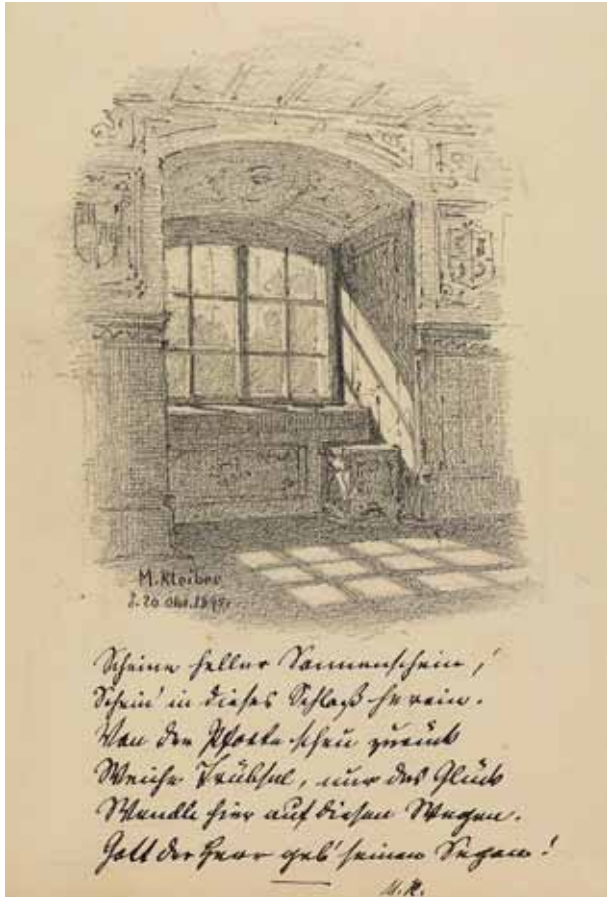 M. Kleiber
Scheine heller Sonnenschein,
Schein' in dieses Schloß herein.
Von der Pforte scheu zurück
Weiche Trübsal, nur das Glück
Wandle hier auf diesen Wegen.
Gott der Herr geb' seinen Segen!
M. K.